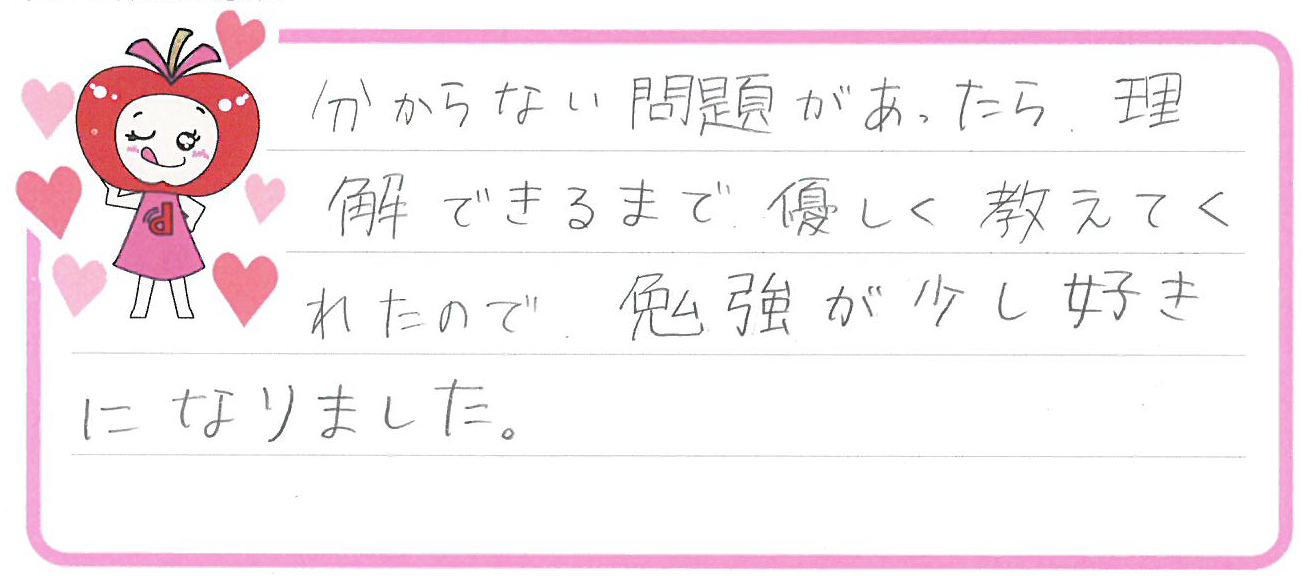 分からない問題があったら、理
解できるまで優しく教えてく
れたので、勉強が少し好き
になりました。